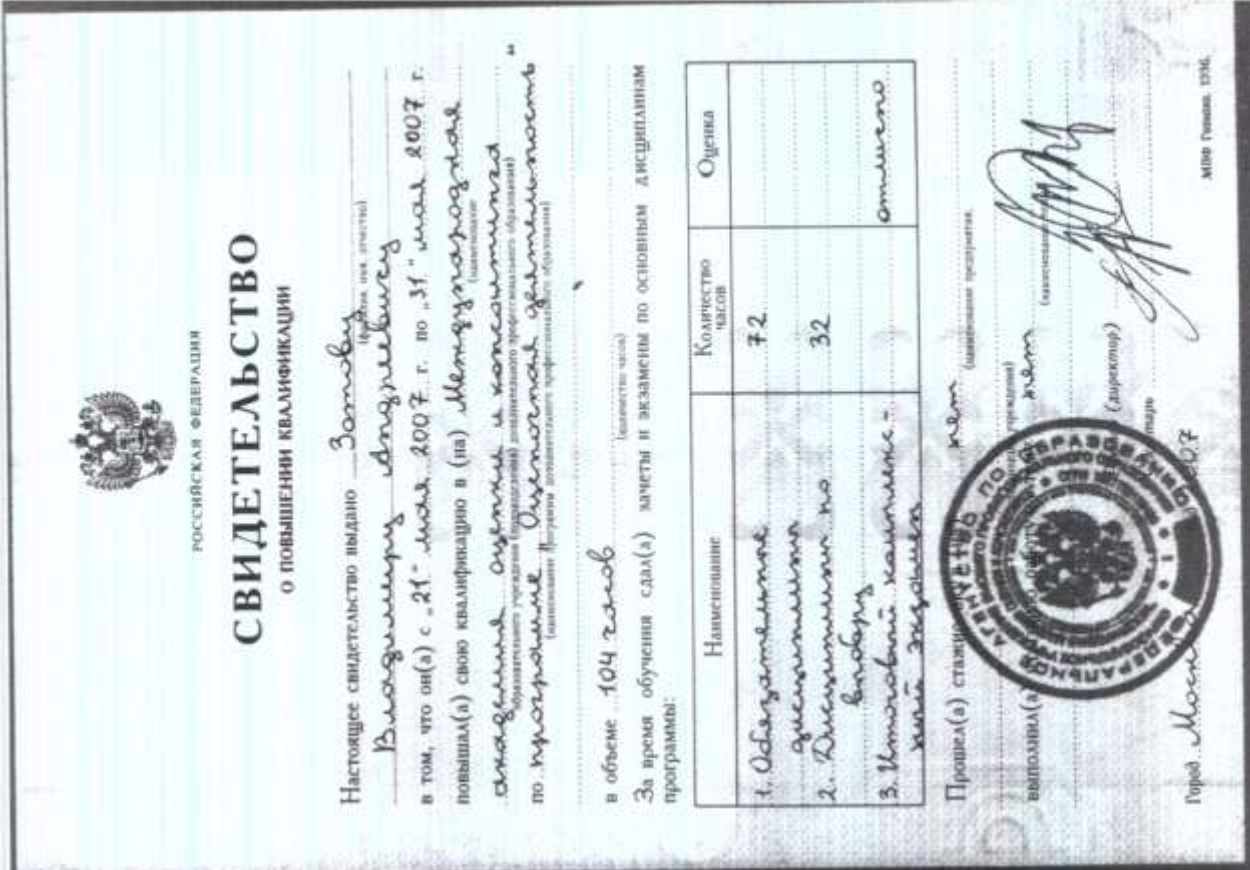 РОССИЙСКАЯ ФЕДЕРАЦИЯ
СВИДЕТЕЛЬСТВО
О ПОВЫШЕНИИ КВАЛИФИКАЦИИ
Настоящее свидетельство выдано Зотову
(фамилия, имя, отчество)
Владимиру Андреевичу
в том, что он(а) с „21“ мая 2007 г. по „31“ мая 2007 г.
повышал(а) свою квалификацию в (на) Международная
(наименование
академия оценки и консалтинга
образовательного учреждения (подразделения) дополнительного профессионального образования)
по программе „Оценочная деятельность“
(наименование программы дополнительного профессионального образования)
в объеме 104 часов
(количество часов)
За время обучения сдал(а) зачеты и экзамены по основным дисциплинам
программы:
Наименование Количество часов Оценка
1. Обязательные 72
дисциплины
2. Дисциплины по 32
выбору
3. Итоговый комплекс- отлично
ный экзамен
Прошел(а) стажи нет
(наименование предприятия,
учреждения)
выполнил(а) нет
(наименование
(директор)
Город Моск 07
МПФ Гознака. 1996.
ФЕДЕРАЛЬНОЕ АГЕНТСТВО ПО ОБРАЗОВАНИЮ